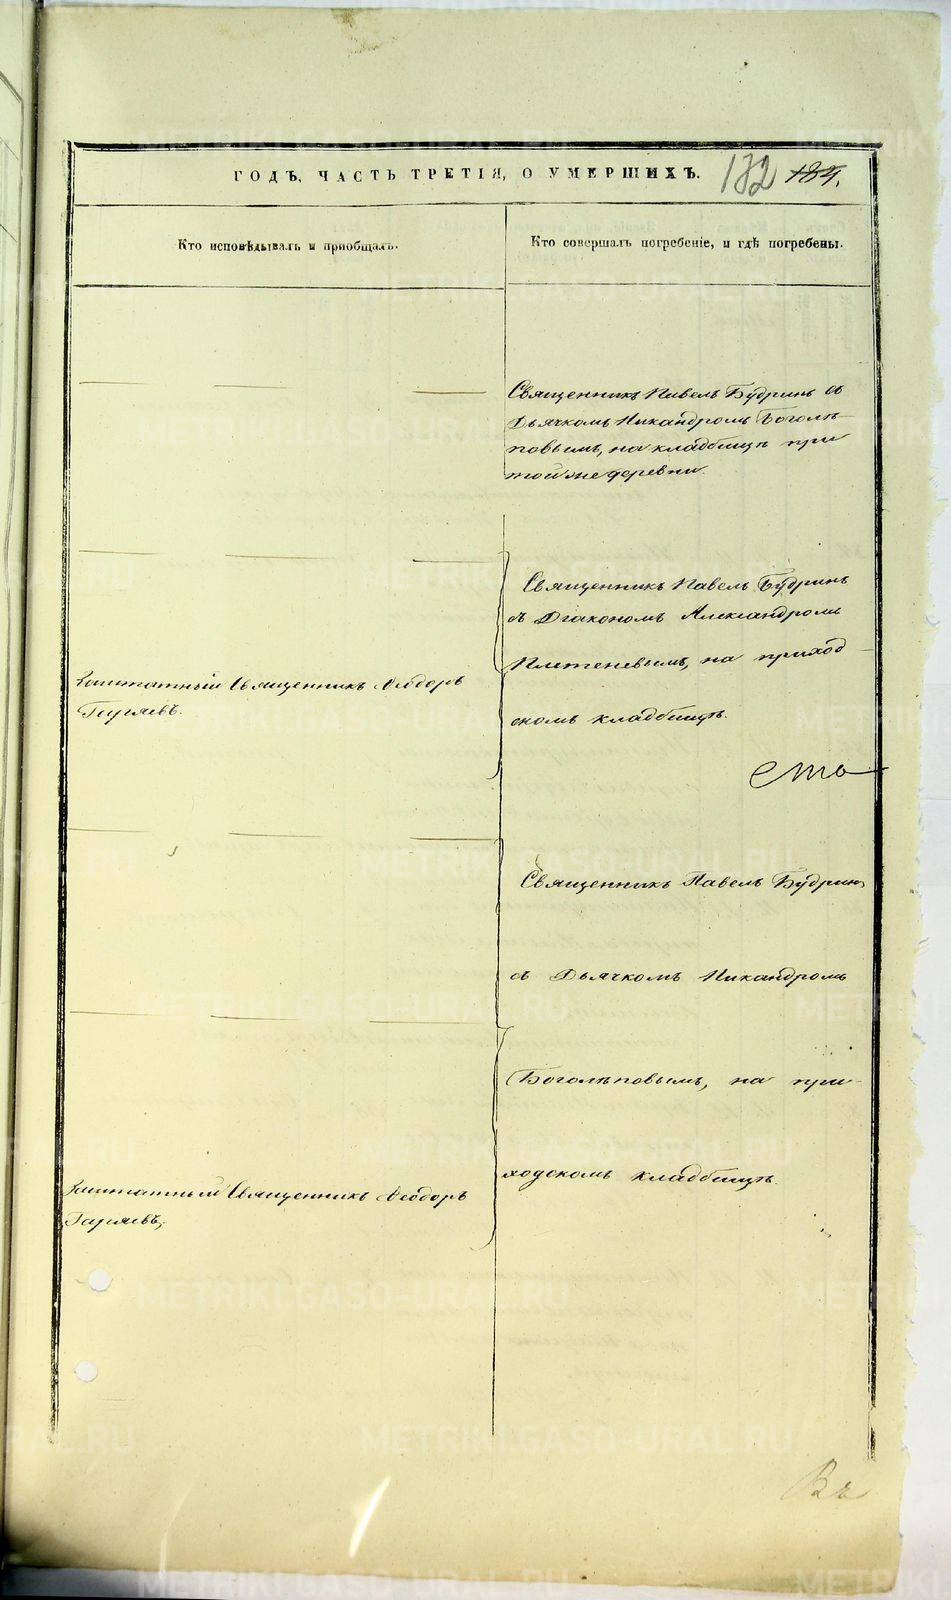 ГОДЪ, ЧАСТЬ ТРЕТІЯ, О УМЕРШИХЪ.
132 184.
Кто исповѣдывалъ и приобщалъ.
Кто совершалъ погребеніе, и гдѣ погребены.
Священникъ Павелъ Будринъ съ
Дьячкомъ Никандромъ Боголѣ-
повымъ, на кладбищѣ при
той же деревни.
Священникъ Павелъ Будринъ
съ Діакономъ Александромъ
Плетеневымъ, на приход-
скомъ кладбищѣ.
Заштатный Священникъ Ѳеодоръ
Гаряевъ.
сто
Священникъ Павелъ Будринъ
съ Дьячкомъ Никандромъ
Боголѣповымъ, на при-
ходскомъ кладбищѣ.
Заштатный Священникъ Ѳеодоръ
Гаряевъ;
METRIKI.GASO-URAL.RU